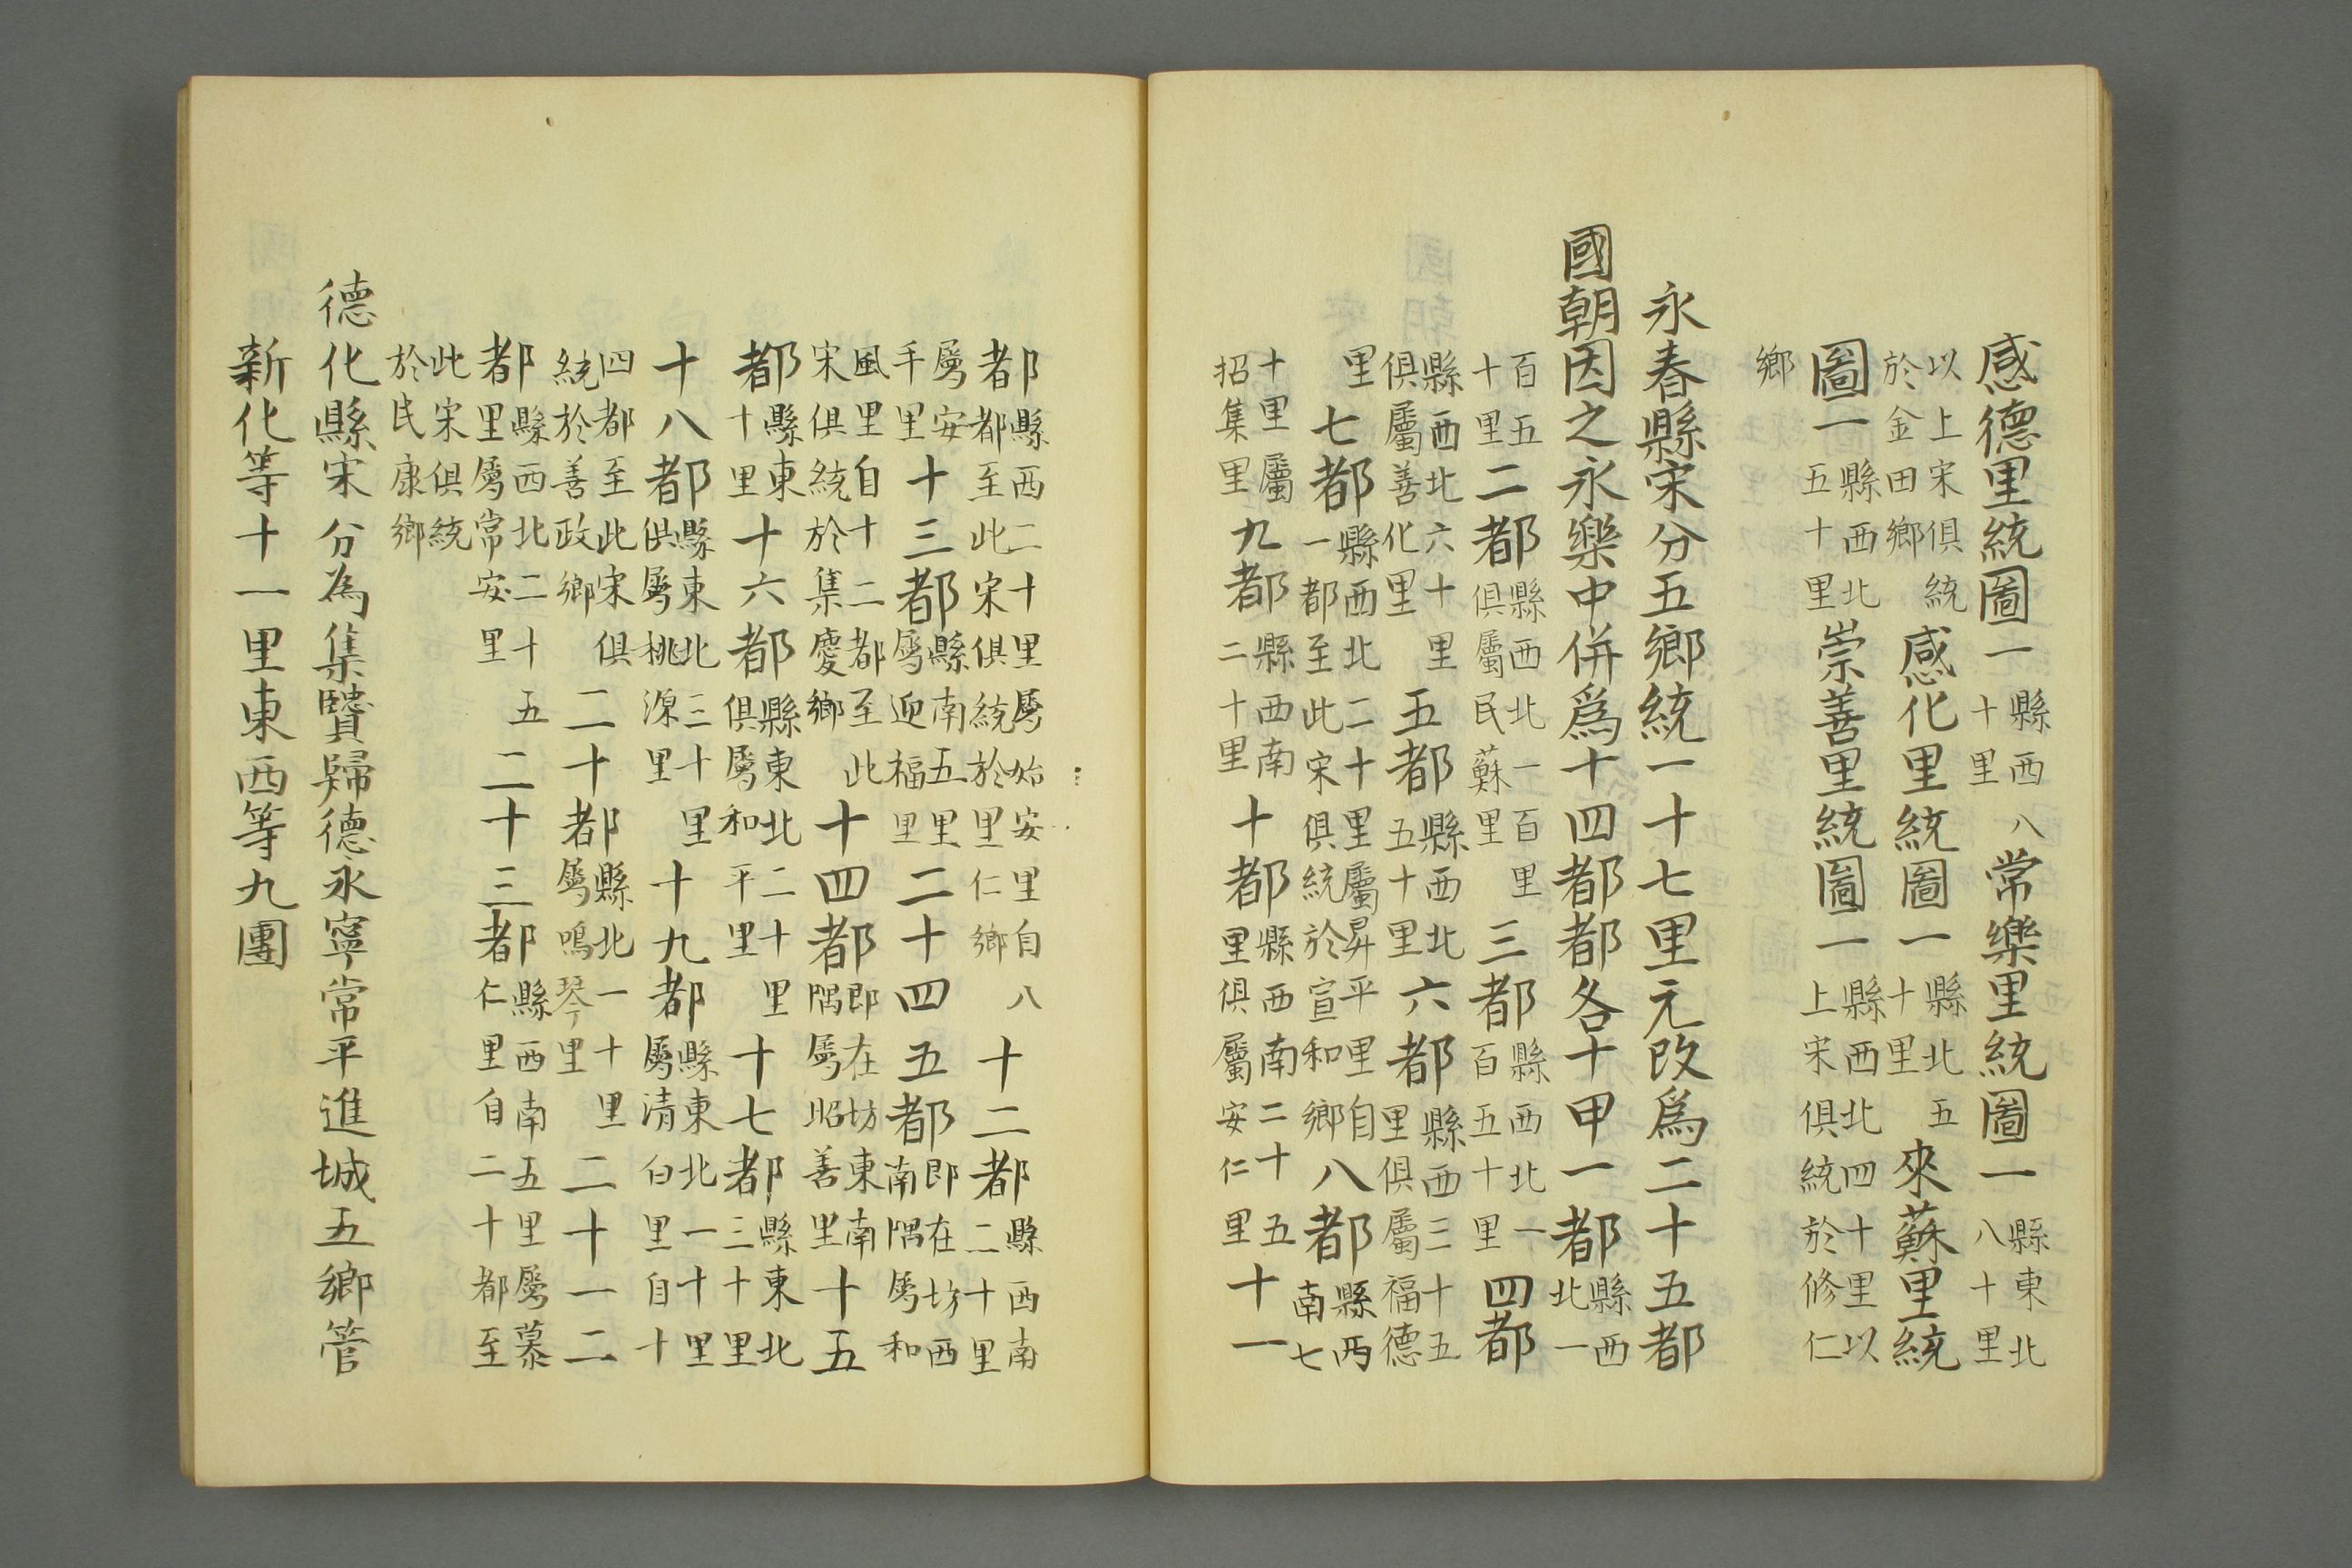 感德里統圖一縣西八十里常樂里統圖一縣東北八十里
以上宋俱統於金田鄉感化里統圖一縣北五十里來蘇里統
圖一縣西北五十里崇善里統圖一縣西北四十里以上宋俱統於修仁
鄉
永春縣宋分五鄉統一十七里元改爲二十五都
國朝因之永樂中併爲十四都都各十甲一都縣西北一
百五十里二都縣西北一百里俱屬民蘇里三都縣西北一百五十里四都
縣西北六十里俱屬善化里五都縣西北五十里六都縣西三十五里俱屬福德
里七都縣西北二十里屬昇平里自一都至此宋俱統於宣和鄉八都縣西南七
十里屬招集里九都縣西南二十里十都縣西南二十五里俱屬安仁里十一
都縣西二十里屬始安里自八都至此宋俱統於里仁鄉十二都縣西南二十里
屬安手里十三都縣南五里屬迎福里二十四五都即在坊西南隅屬和
風里自十二都至此宋俱統於集慶鄉十四都即在坊東南隅屬昭善里十五
都縣東十里十六都縣東北二十里俱屬和平里十七都縣東北三十里
十八都縣東北三十里俱屬桃源里十九都縣東北一十里屬清白里自十
四都至此宋俱統於善政鄉二十都縣北一十里屬鳴琴里二十一二
都縣西北二十五里屬常安里二十三都縣西南五里屬慕仁里自二十都至
此宋俱統於民康鄉
德化縣宋分為集賢歸德永寧常平進城五鄉管
新化等十一里東西等九團